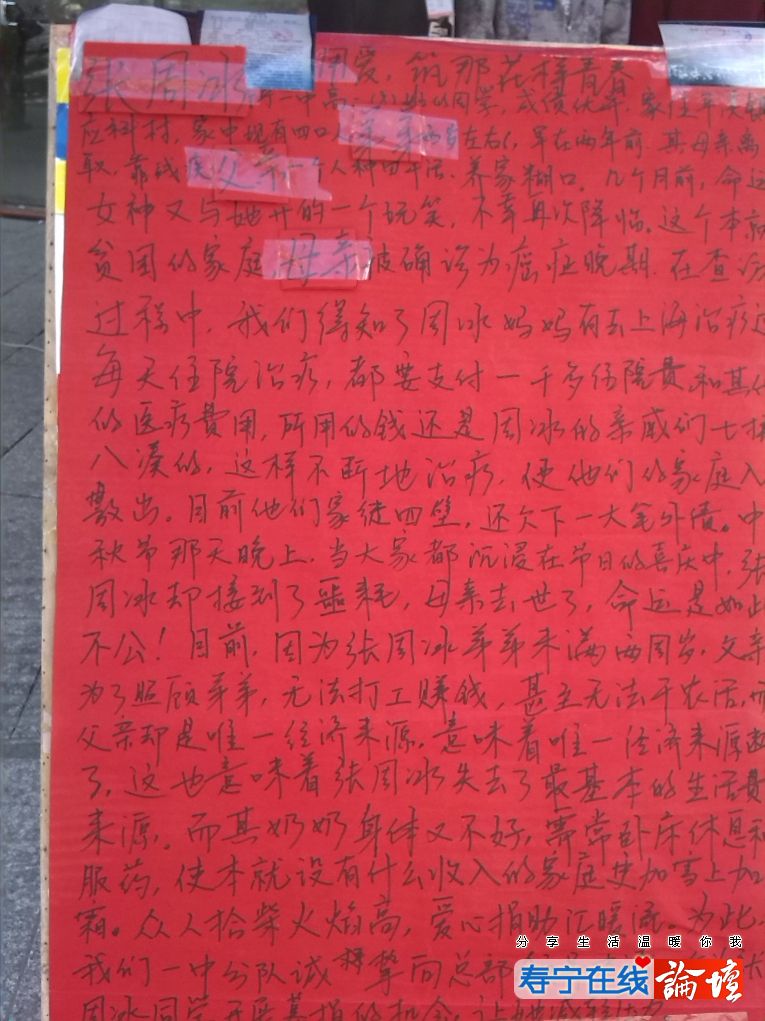 用爱，筑那花样青春
张周冰 一中高一 同学，成绩优异，家住平溪镇
应科村，家中现有四口人 弟弟两岁左右，早在两年前 其母亲离
职，靠残疾父亲一个人种田干活、养家糊口。几个月前，命运
女神又与她开的一个玩笑，不幸再次降临。这个本就
贫困的家庭，母亲被确诊为癌症晚期，在查访
过程中，我们得知了周冰妈妈有去上海治疗过
每天住院治疗，都要支付一千多住院费和其他
的医疗费用，所用的钱还是周冰的亲戚们七拼
八凑的，这样不断地治疗，使他们的家庭入
敷出。目前他们家徒四壁，还欠下一大笔外债。中
秋节那天晚上，当大家都沉浸在节日的喜庆中，张
周冰却接到了噩耗，母亲去世了，命运是如此
不公！目前，因为张周冰弟弟未满两周岁，父亲
为了照顾弟弟，无法打工赚钱，甚至无法干农活，而
父亲却是唯一经济来源，意味着唯一经济来源断
了，这也意味着张周冰失去了最基本的生活费
来源。而其奶奶身体又不好，需常卧床休息和
服药，使本就没有什么收入的家庭更加雪上加
霜。众人拾柴火焰高，爱心捐助汇暖流。为此，
我们一中分队诚挚向总部
周冰同学开展募捐的机会，让她减轻压力
分享生活温暖你我
寿宁在线 論壇